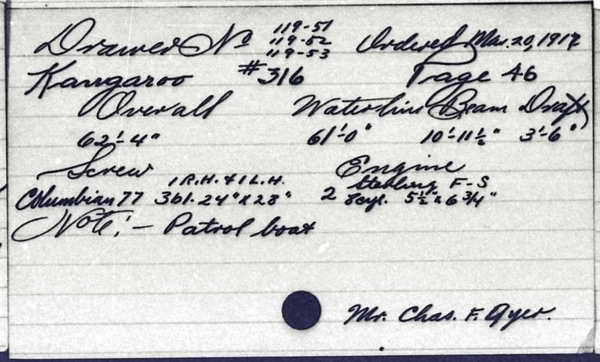 Drawer No 119-51 Ordered Mar. 20, 1917
119-52
119-53
Kangaroo #316 Page 46
Overall Waterline Beam Draft
62'-4" 61'-0" 10'-11½" 3'-6"
Screw Engine
1 R.H. & 1 L.H. Sterling F-S
Columbian 77 3bl. 24" x 28" 2 8cyl. 5½ x 6¾"
Note:- Patrol boat
Mr. Chas. F. Ayer.